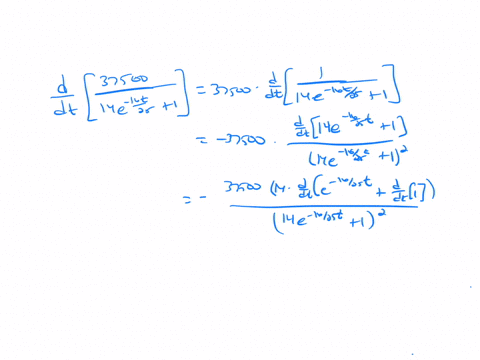 d/dt [37500 / (14e^(-16t/25) + 1)] = 37500 · d/dt [1 / (14e^(-16t/25) + 1)]
= -37500 · d/dt [14e^(-16/25 t) + 1] / (14e^(-16/25 t) + 1)^2
= - 37500 (14 · d/dt (e^(-16/25 t) + d/dt [1]) / (14e^(-16/25 t) + 1)^2